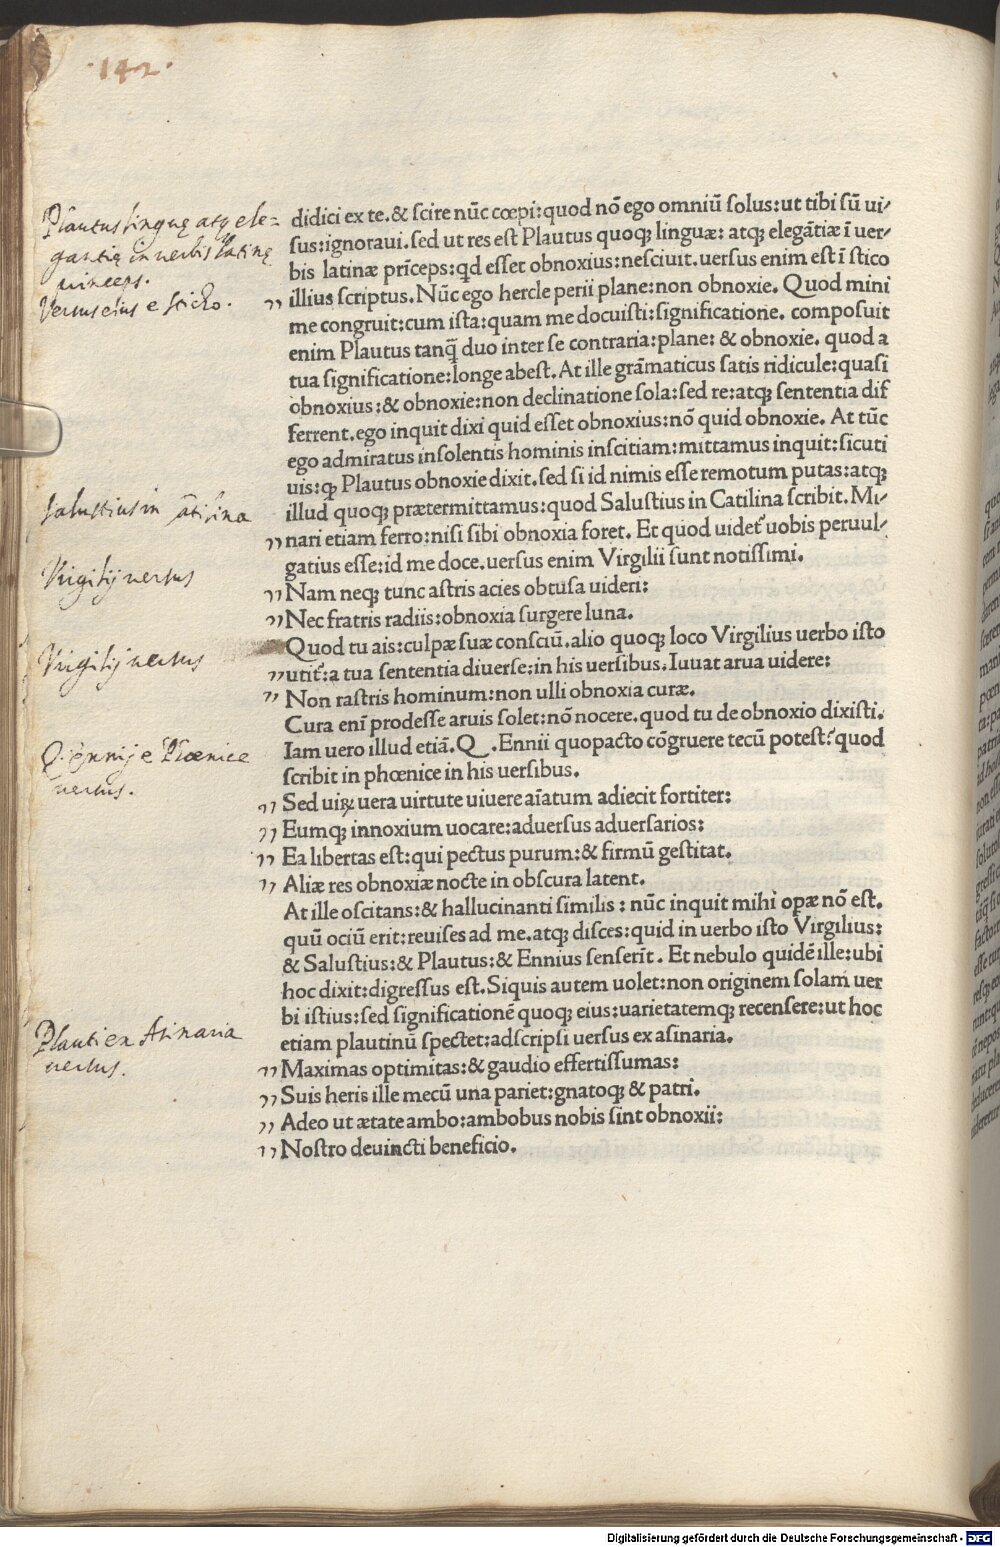 ·142·
Plautus linguę atq; ele=
gantię in verbis latinę
princeps.
Versus eius e sticho.
didici ex te.& ſcire nūc cœpi:quod nō ego omniū ſolus:ut tibi ſū ui/
ſus:ignoraui.ſed ut res eſt Plautus quoq; linguæ: atq; elegātiæ ī uer/
bis latinæ prīceps:qd eſſet obnoxius:neſciuit.uerſus enim eſt ī ſtico
,, illius ſcriptus.Nūc ego hercle perii plane:non obnoxie. Quod mini
me congruit:cum iſta:quam me docuiſti:ſignificatione. compoſuit
enim Plautus tanq̄ duo inter ſe contraria:plane: & obnoxie. quod a
tua ſignificatione:longe abeſt.At ille grāmaticus ſatis ridicule:quaſi
obnoxius:& obnoxie:non declinatione ſola:ſed re:atq; ſententia dif
ferrent.ego inquit dixi quid eſſet obnoxius:nō quid obnoxie. At tūc
ego admiratus inſolentis hominis inſcitiam:mittamus inquit:ſicuti
uis:ꝙ Plautus obnoxie dixit.ſed ſi id nimis eſſe remotum putas:atq;
Salustius in Catilina
illud quoq; prætermittamus:quod Saluſtius in Catilina ſcribit.Mi/
,, nari etiam ferro:niſi ſibi obnoxia foret. Et quod uidet᷑ uobis peruul/
gatius eſſe:id me doce.uerſus enim Virgilii ſunt notiſſimi.
Virgilij versus
,, Nam neq; tunc aſtris acies obtuſa uideri:
,, Nec fratris radiis:obnoxia ſurgere luna.
Quod tu ais:culpæ ſuæ conſciū.alio quoq; loco Virgilius uerbo iſto
Virgilij versus
,, utit᷑:a tua ſententia diuerſe:in his uerſibus.Iuuat arua uidere:
,, Non raſtris hominum:non ulli obnoxia curæ.
Cura enī prodeſſe aruis ſolet:nō nocere.quod tu de obnoxio dixiſti.
Q. Ennij e Phœnice
versus.
Iam uero illud etiā.Q .Ennii quopacto cōgruere tecū poteſt?quod
ſcribit in phœnice in his uerſibus.
,, Sed uiꝝ uera uirtute uiuere aīatum adiecit fortiter:
,, Eumq; innoxium uocare:aduerſus aduerſarios:
,, Ea libertas eſt:qui pectus purum:& firmū geſtitat.
,, Aliæ res obnoxiæ nocte in obſcura latent.
At ille oſcitans:& hallucinanti ſimilis : nūc inquit mihi opæ nō eſt.
quū ociū erit:reuiſes ad me.atq; diſces:quid in uerbo iſto Virgilius:
& Saluſtius:& Plautus:& Ennius ſenſerīt. Et nebulo quidē ille:ubi
hoc dixit:digreſſus eſt.Siquis autem uolet:non originem ſolam uer
bi iſtius:ſed ſignificationē quoq; eius:uarietatemq; recenſere:ut hoc
Plauti ex Asinaria
versus.
etiam plautinū ſpectet:adſcripſi uerſus ex aſinaria.
,, Maximas optimitas:& gaudio effertiſſumas:
,, Suis heris ille mecū una pariet:gnatoq; & patri.
,, Adeo ut ætate ambo:ambobus nobis ſint obnoxii:
,, Noſtro deuincti beneficio.
Digitalisierung gefördert durch die Deutsche Forschungsgemeinschaft - DFG